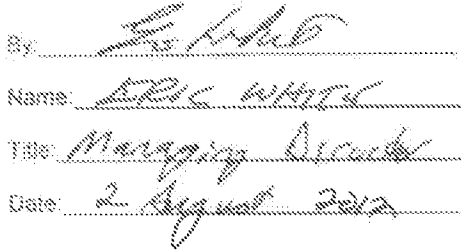 By:
Name: ERIC WHITE
Title: Managing Director
Date: 2 August 2012